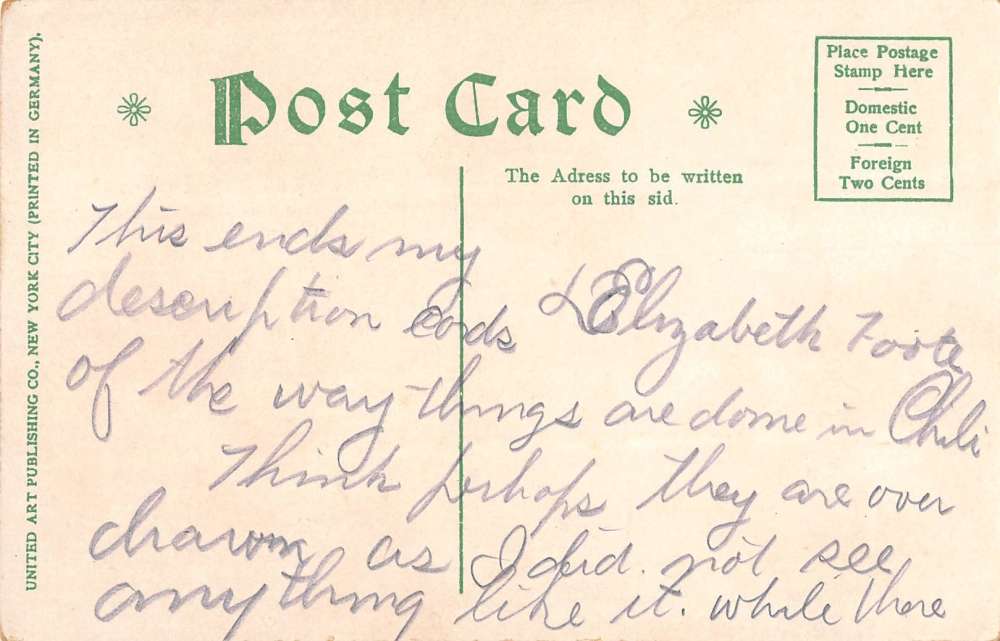 UNITED ART PUBLISHING CO., NEW YORK CITY (PRINTED IN GERMANY).
Post Card
Place Postage
Stamp Here
Domestic
One Cent
Foreign
Two Cents
The Adress to be written
on this sid.
This ends my
description cards
Elizabeth Foote
of the way things are done in Chili
Think perhaps they are over
drawn as I did not see
anything like it. while there